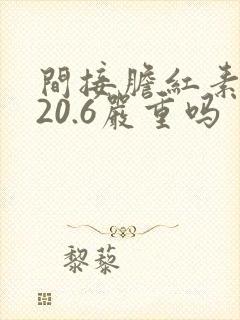 間接膽紅素
20.6嚴重吗
黎蔾